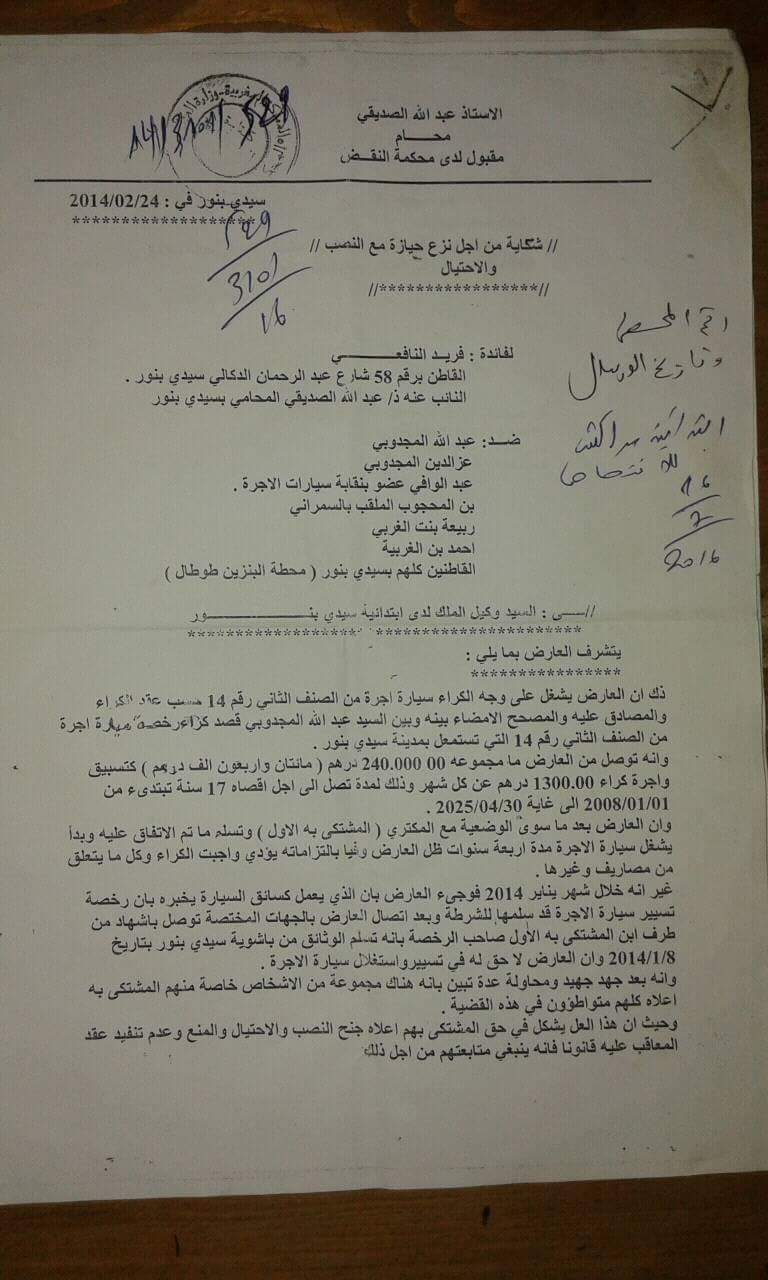 الاستاذ عبد الله الصديقي
محـــام
مقبول لدى محكمة النقــض
سيدي بنور في : 2014/02/24
*******************
529
3101
16
// شكاية من اجل نزع حيازة مع النصب //
والاحتيال
//*****************//
لفائدة : فريد النافعـــــــي
القاطن برقم 58 شارع عبد الرحمان الدكالي سيدي بنور .
النائب عنه ذ/ عبد الله الصديقي المحامي بسيدي بنور
ضــد: عبد الله المجدوبي
عزالدين المجدوبي
عبد الوافي عضو بنقابة سيارات الاجرة .
بن المحجوب الملقب بالسمراني
ربيعة بنت الغربي
احمد بن الغربية
القاطنين كلهم بسيدي بنور ( محطة البنزين طوطال )
و تاريخ
16
2016
//ــــى : السيد وكيل الملك لدى ابتدائية سيدي بنـــــــــــور
***************************************
يتشرف العارض بما يلي :
****************
ذك ان العارض يشغل على وجه الكراء سيارة اجرة من الصنف الثاني رقم 14 حسب عقد الكراء
والمصادق عليه والمصحح الامضاء بينه وبين السيد عبد الله المجدوبي قصد كراء رخصة سيارة اجرة
من الصنف الثاني رقم 14 التي تستمعل بمدينة سيدي بنور .
وانه توصل من العارض ما مجموعه 240.000 00 درهم ( مائتان واربعون الف درهم ) كتسبيق
واجرة كراء 1300.00 درهم عن كل شهر وذلك لمدة تصل الى اجل اقصاه 17 سنة تبتدىء من
2008/01/01 الى غاية 2025/04/30 .
وان العارض بعد ما سوى الوضعية مع المكتري ( المشتكى به الاول ) وتسلم ما تم الاتفاق عليه وبدأ
يشغل سيارة الاجرة مدة اربعة سنوات ظل العارض وفيا بالتزاماته يؤدي واجبت الكراء وكل ما يتعلق
من مصاريف وغيرها .
غير انه خلال شهر يناير 2014 فوجىء العارض بان الذي يعمل كسائق السيارة يخبره بان رخصة
تسيير سيارة الاجرة قد سلمها للشرطة وبعد اتصال العارض بالجهات المختصة توصل باشهاد من
طرف ابن المشتكى به الأول صاحب الرخصة بانه تسلم الوثائق من باشوية سيدي بنور بتاريخ
2014/1/8 وان العارض لا حق له في تسييرواستغلال سيارة الاجرة .
وانه بعد جهد جهيد ومحاولة عدة تبين بانه هناك مجموعة من الاشخاص خاصة منهم المشتكى به
اعلاه كلهم متواطؤون في هذه القضية .
وحيث ان هذا العل يشكل في حق المشتكى بهم اعلاه جنح النصب والاحتيال والمنع وعدم تنفيد عقد
المعاقب عليه قانونا فانه ينبغي متابعتهم من اجل ذلك